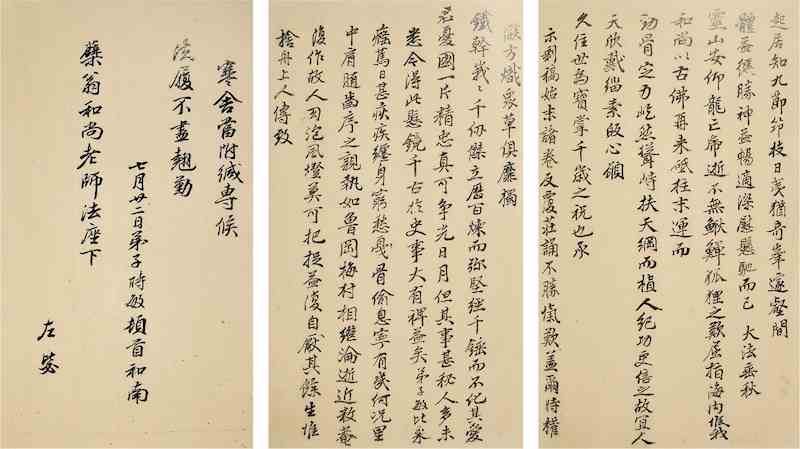 起居知九節笻枝日夷猶奇峯邃壑間
體益復勝神益暢適深慰懸馳而已 大法垂秋
靈山安仰龍亡虎逝不無鰍鱓狐狸之歎屈指海內
和尚以古佛再來砥柱末運而
骨定力屹然聳峙扶天綱而植人紀功更倍之故宜人
天欣戴緇素啟心願
久住世為寶掌千歲之祝也承
示剳稿始末諸卷反覆莊誦不勝愾歎蓋爾時權
燄方熾眾草俱靡獨
鐵幹峩峩千仞傑立歷百煉而弥堅經千錘而不化其愛
君憂國一片精忠真可争光日月但其事甚秘人多未
悉今得此懸鏡千古於史事大有裨益矣弟子敏比來
癃篤日甚疾纏身窮愁戛骨偷息寧有幾何况里
中肩隨齒序之親執如魯岡梅村相繼淪逝近救菴
復作故人風燈莫可把捉益復自厭其餘生惟
捨舟上人傳致
寒舍當附緘専候
履不盡翹勤
七月廿二日弟子時敏頓首和南
檗翁和尚老師法座下
左